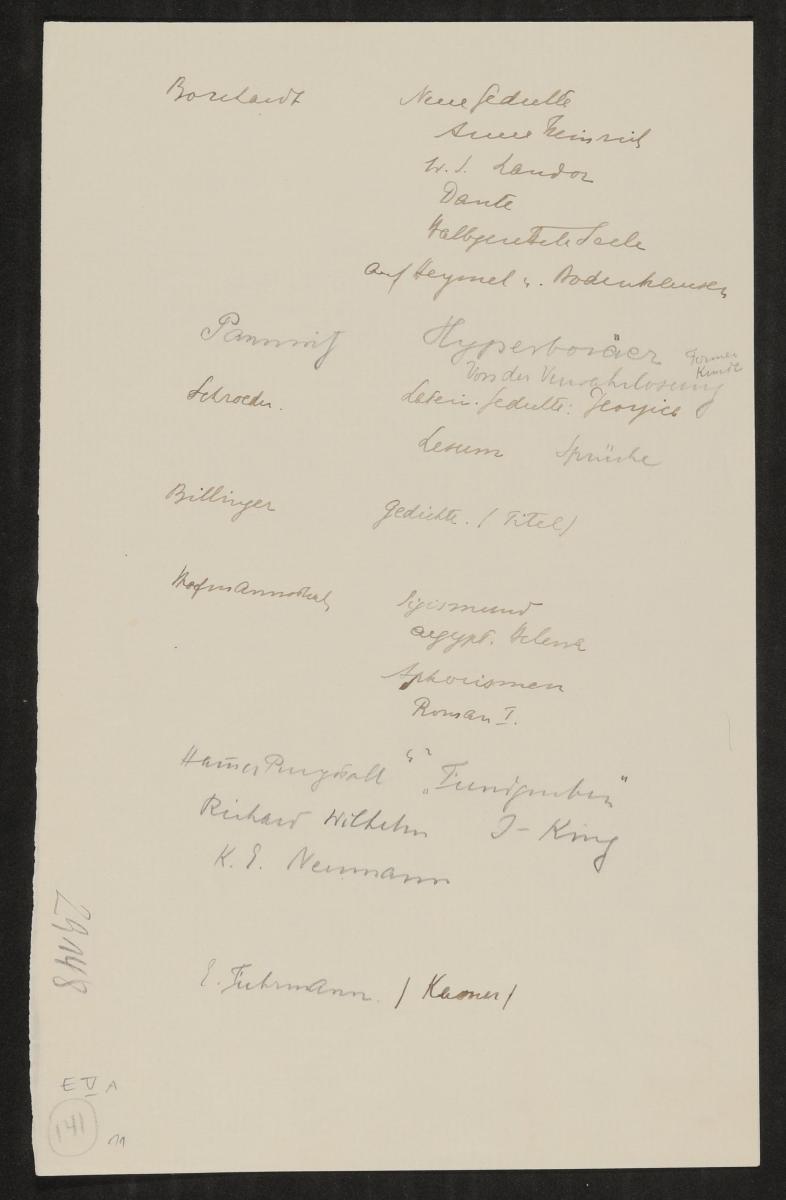 Borchardt Neue Gedichte
Arme Heinrich
W. S. Landor
Dante
Halbgerettete Seele
auf Heymel u. Bodenhausen
Pannwitz Hyperboräer Formen
Kunde
Von der Verwahrlosung
Schroeder. Latein. Gedichte: Georgica
Lesum Sprüche
Billinger Gedichte. (Titel)
Hofmannsthal Sigismund
aegypt. Helena
Aphorismen
Roman I.
Hammer Purgstall „Fundgruben"
Richard Wilhelm I-King
K. E. Neumann
E. Fuhrmann. / Kassner /
29148
E V A
141
11